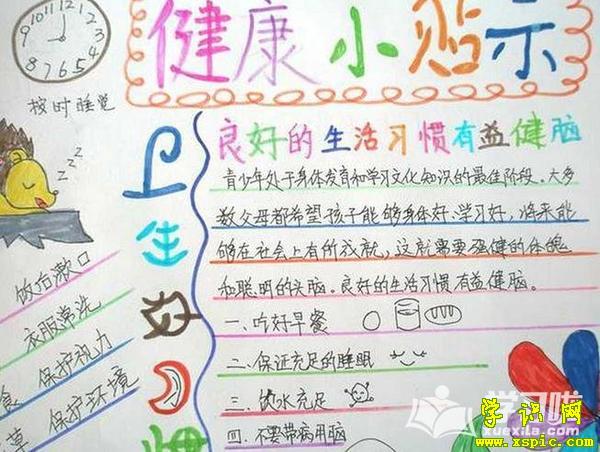 健康小贴示
12
11
1
10
2
9
3
8
4
7
6
5
按时睡觉
zzz
饭后漱口
衣服常洗
保护视力
保护环境
卫生好习惯
良好的生活习惯有益健脑
青少年处于身体发育和学习文化知识的最佳阶段。大多
数父母都希望孩子能够身体好、学习好，将来能
够在社会上有所成就，这就需要强健的体魄
和聪明的头脑。良好的生活习惯有益健脑。
一、吃好早餐
二、保证充足的睡眠
三、饮水充足
四、不要带病用脑
学习啦
xuexila.com
学识网
www.xspic.com